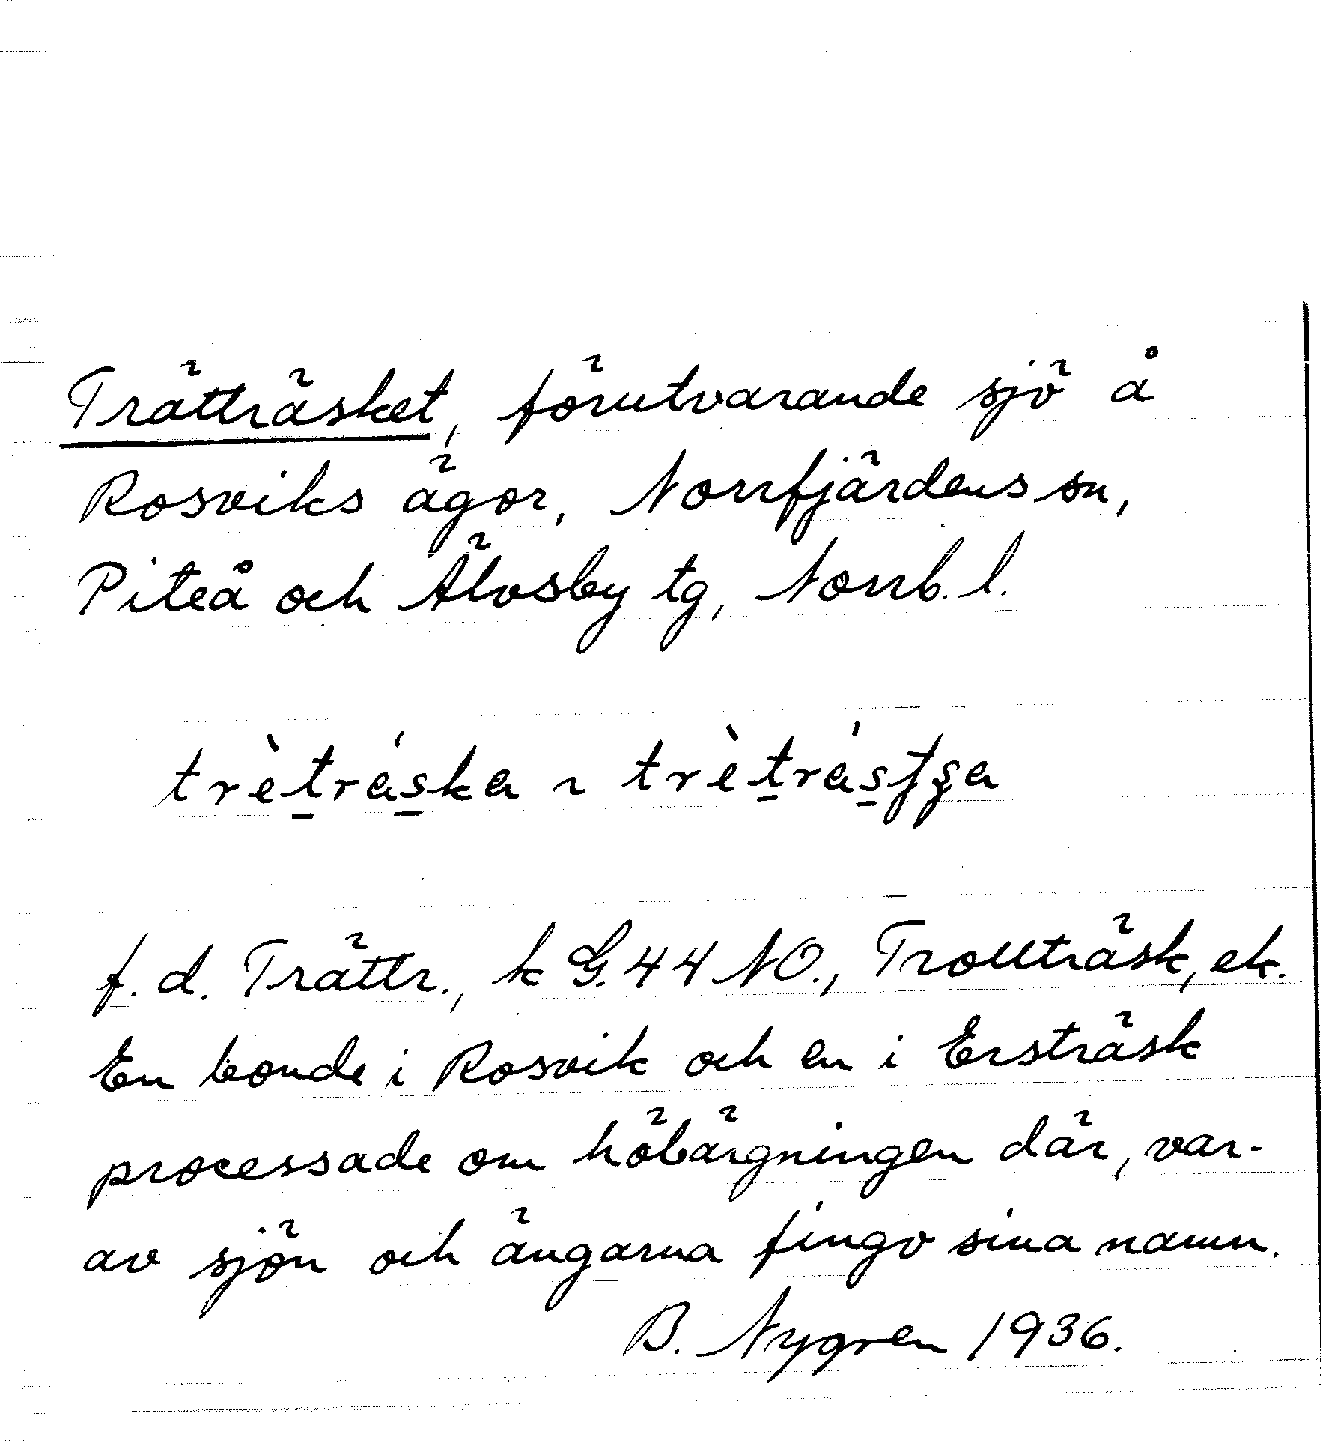 Trätträsket, förutvarande sjö å
Rosviks ägor, Norrfjärdens sn,
Piteå och Älvsby tg, Norrb. l.
f. d. Trättr., k G. 44 NO., Trollträsk, ek.
En bonde i Rosvik och en i Ersträsk
processade om höbärgningen där, var-
av sjön och ängarna fingo sina namn.
B. Nygren 1936.